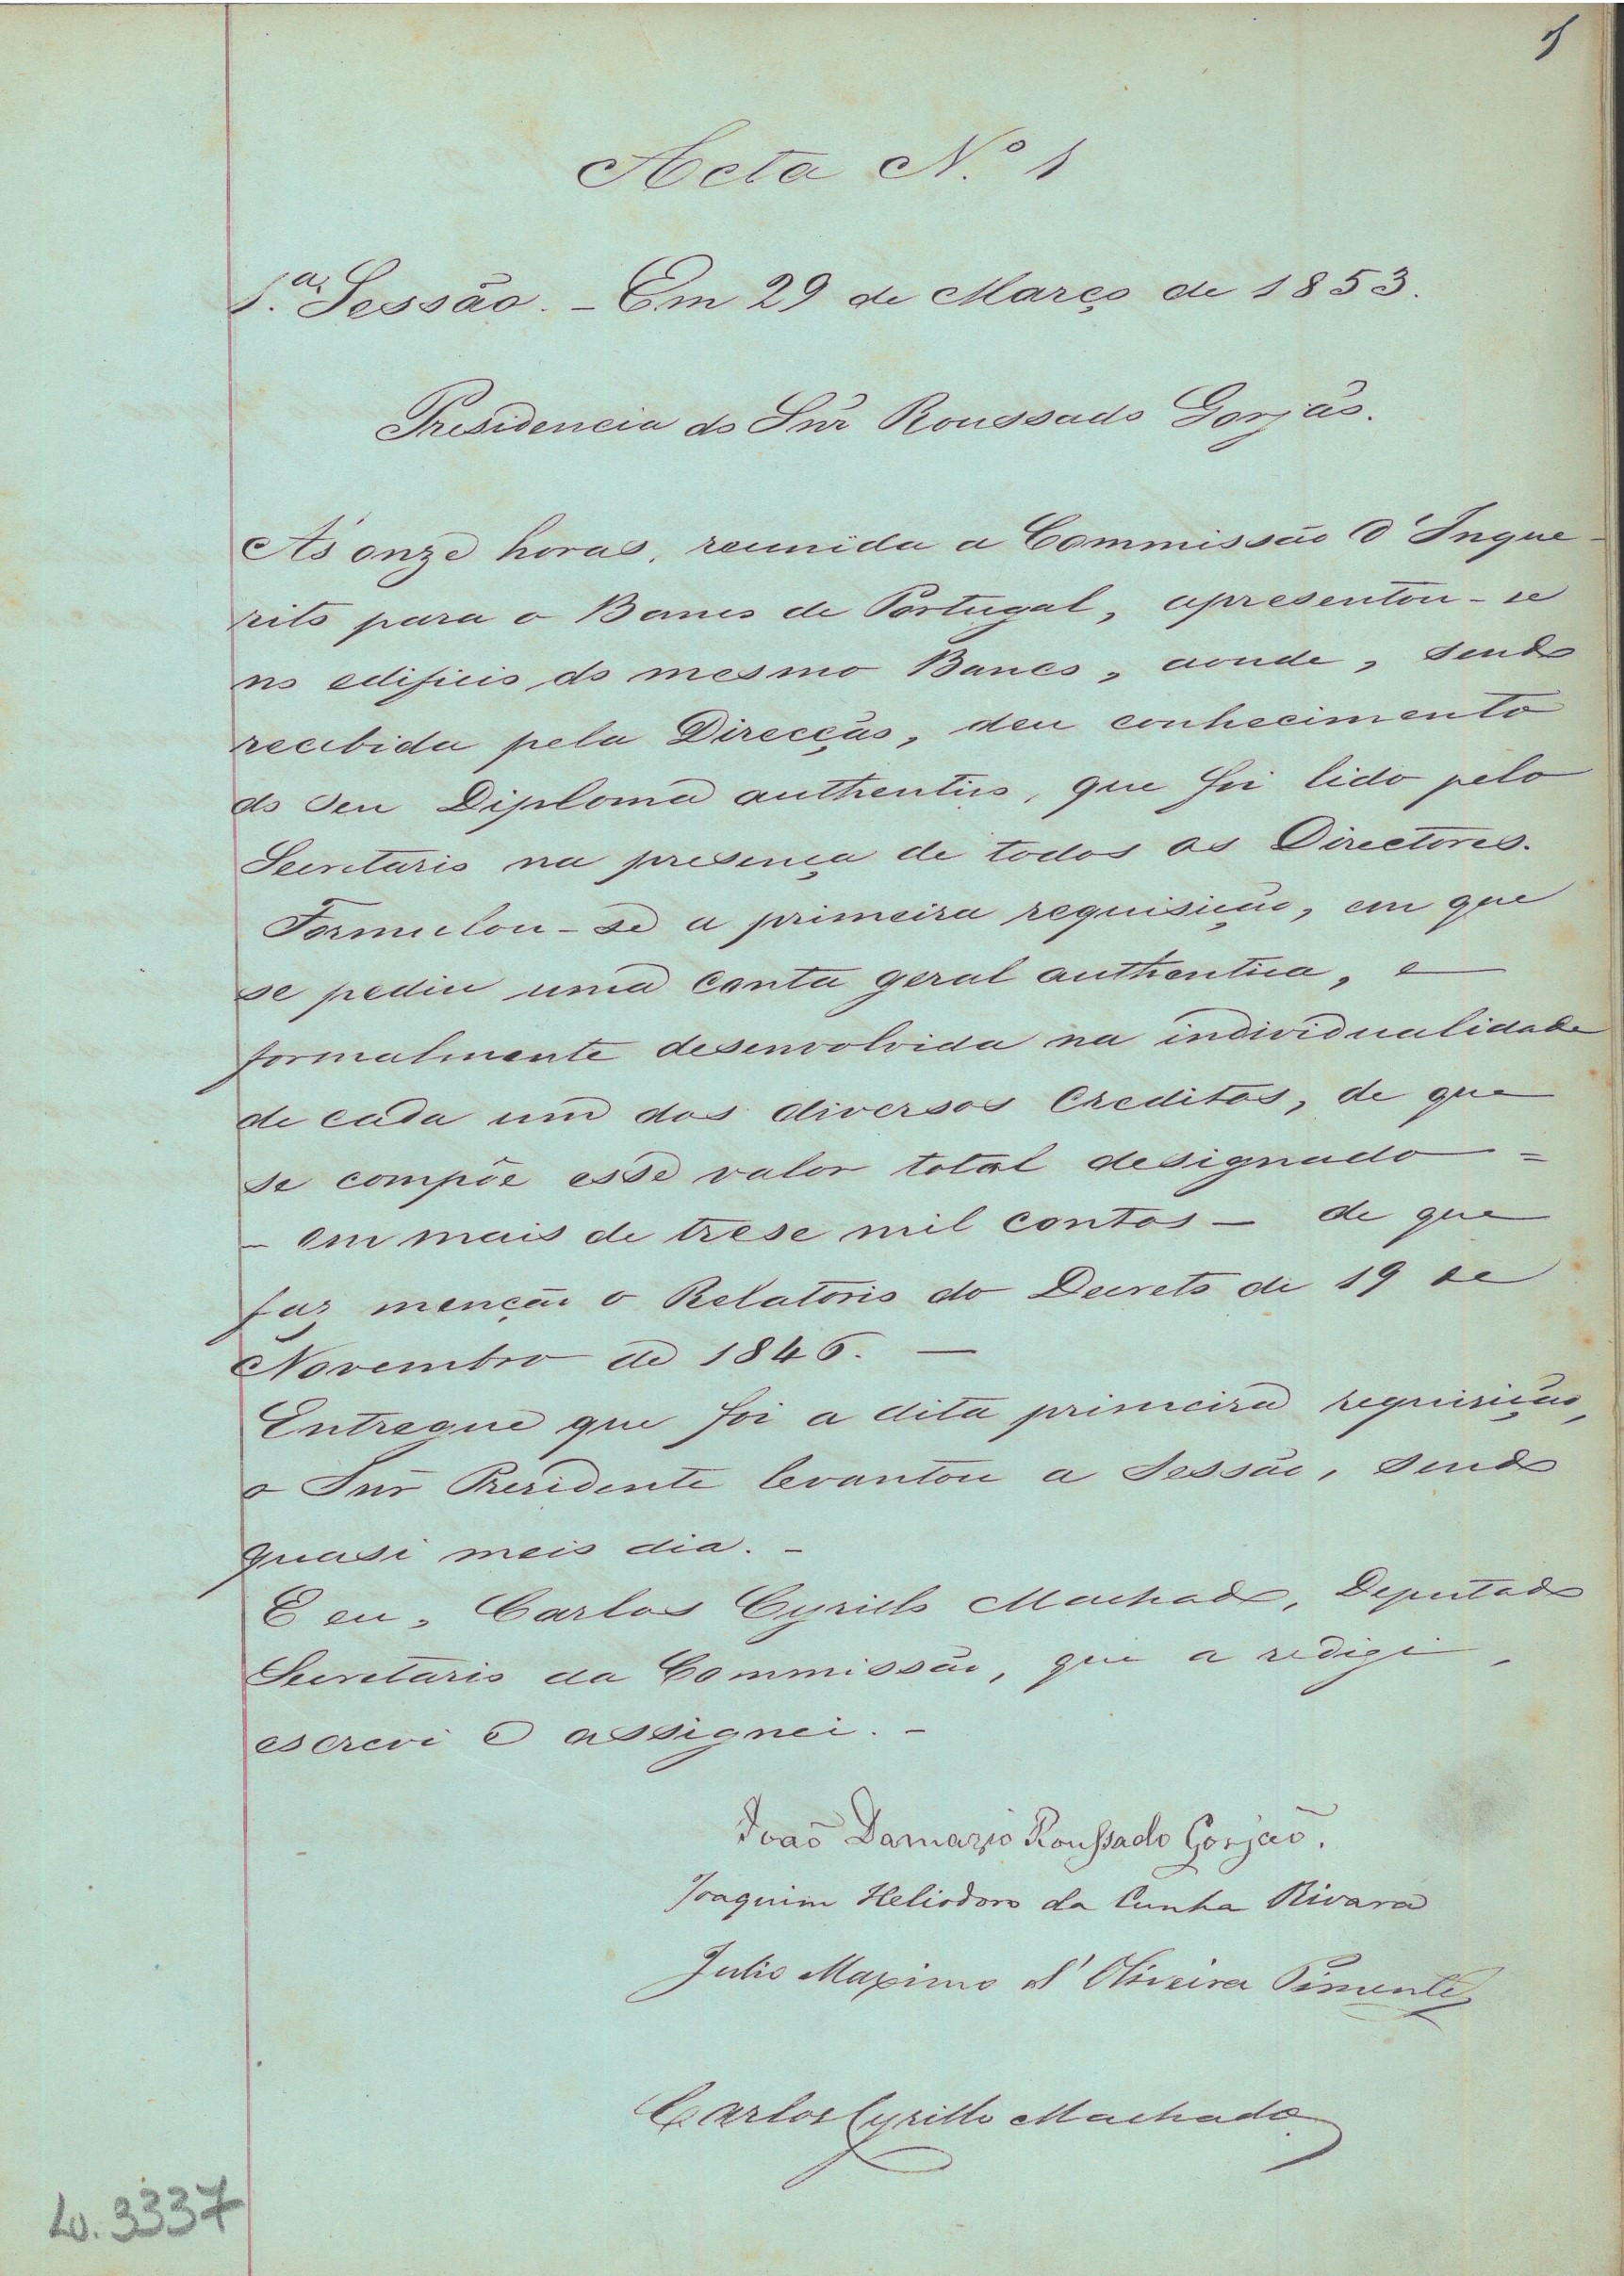 1
Acta N.º 1
1.ª Sessão. - Em 29 de Março de 1853.
Presidencia do Snr Roussado Gorjão.
Ás onze horas, reunida a Commissão d'Inque-
rito para o Banco de Portugal, apresentou-se
no edificio do mesmo Banco, aonde, sendo
recebida pela Direcção, deu conhecimento
do seu Diploma authentico, que foi lido pelo
Secretario na presença de todos os Directores.
Formulou-se a primeira requisição, em que
se pediu uma conta geral authentica, e
formalmente desenvolvida na individualidade
de cada um dos diversos Creditos, de que
se compõe esse valor total designado =
- em mais de trese mil contos - de que
faz menção o Relatorio do Decreto de 19 de
Novembro de 1846. —
Entregue que foi a dita primeira requisição,
o Snr Presidente levantou a Sessão, sendo
quasi meio dia. -
E eu, Carlos Cyrillo Machado, Deputado
Secretario da Commissão, que a redigi,
escrevi e assignei. -
João Damazio Roussado Gorjão.
Joaquim Heliodoro da Cunha Rivara
Julio Maximo d'Oliveira Pimentel
Carlos Cyrillo Machado
Lv. 3337